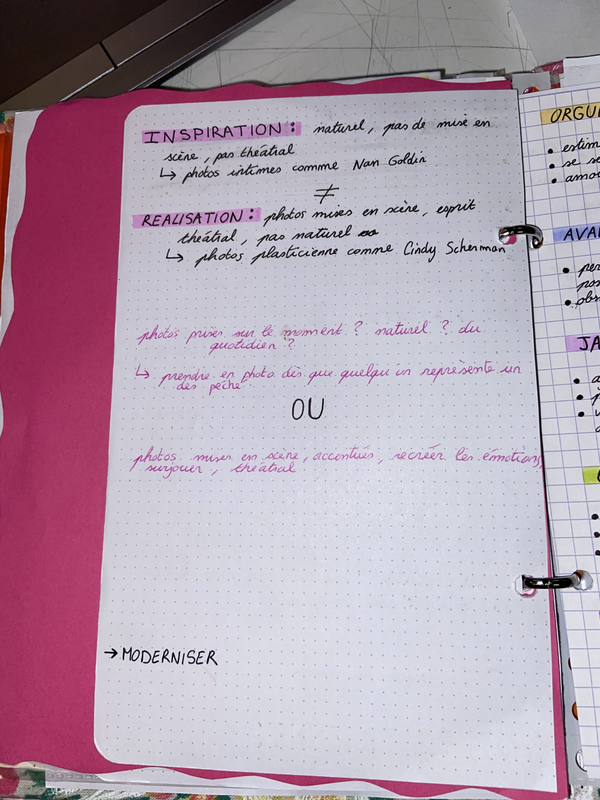 INSPIRATION : naturel, pas de mise en
scène, pas théatral
↳ photos intimes comme Nan Goldin
≠
REALISATION : photos mises en scène, esprit
théatral, pas naturel
↳ photos plasticienne comme Cindy Scherman
photos prises sur le moment ? naturel ? du
quotidien ?
↳ prendre en photo dès que quelqu'un représente un
des péché
OU
photos mises en scène, accentués, recréer les émotions,
surjouer, théatral
→ MODERNISER
ORGU
• estim
• se se
AVA
• per
• obs
JA